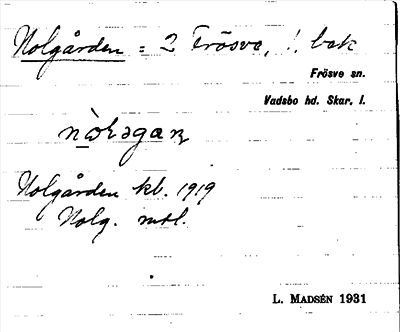 Nolgården = 2 Frösve, 1. bok
Frösve sn.
Vadsbo hd. Skar. l.
Nolgården kb. 1919
Nolg. mtl.
L. MADSÉN 1931